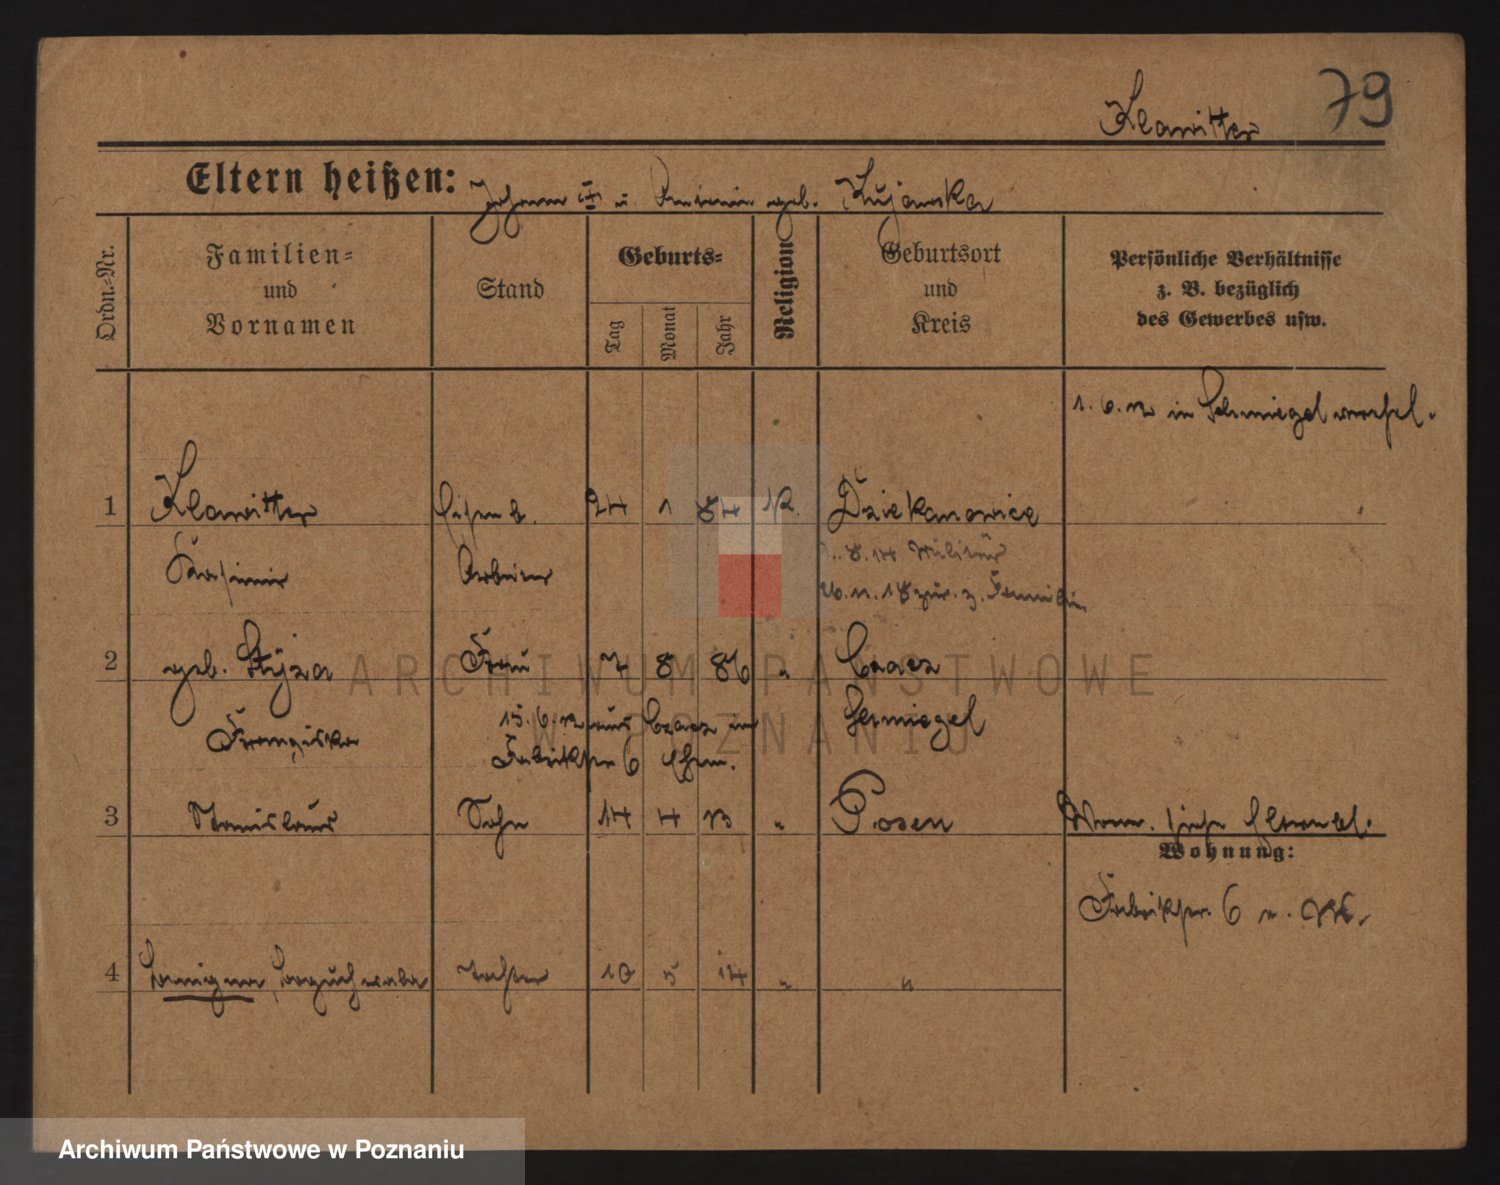 79
Klawitter
Eltern heißen: Johann u. geb. Kujawska
Ordn.=Nr.
Familien=
und
Vornamen
Stand
Geburts=
Tag
Monat
Jahr
Religion
Geburtsort
und
Kreis
Persönliche Verhältnisse
z. B. bezüglich
des Gewerbes usw.
1. 6. 12 in Schmiegel
1 Klawitter 24 1 84 K. Dziekanowice
Kasimir Arbeiter 8. 14 Militär
18 zur. z. Familie
2 geb. Stÿza Frau 7 8 86 " Czacz
Franziska 15. 6. 12 aus Czacz in Schmiegel
Fabrikstr 6
3 Stanislaus Sohn 14 4 13 " Posen siehe
Wohnung:
Fabrikstr. 6
4 Tochter 10 5 14 " "
ARCHIWUM PAŃSTWOWE
W POZNANIU
Archiwum Państwowe w Poznaniu